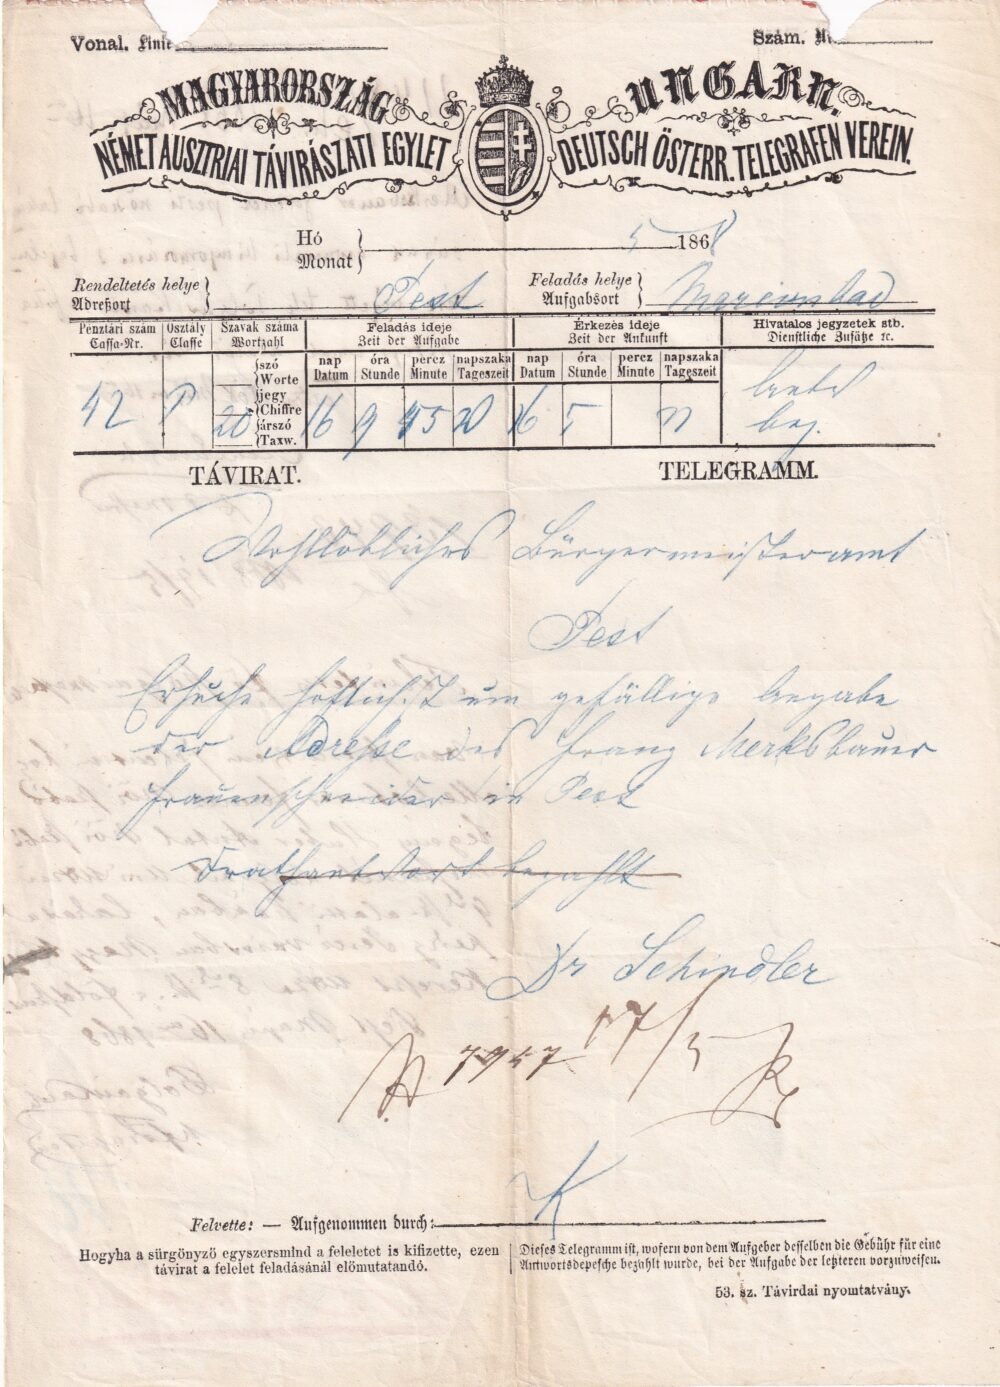 Vonal. Linie
Szám. Nr.
MAGYARORSZÁG
UNGARN.
NÉMET AUSZTRIAI TÁVIRÁSZATI EGYLET
DEUTSCH ÖSTERR. TELEGRAFEN VEREIN.
Hó
Monat
5 1868
Rendeltetés helye
Adreßort
Pest
Feladás helye
Aufgabsort
Marienbad
Pénztári szám
Cassa-Nr.
Osztály
Classe
Szavak száma
Wortzahl
Feladás ideje
Zeit der Aufgabe
Érkezés ideje
Zeit der Ankunft
Hivatalos jegyzetek stb.
Dienstliche Zusätze ꝛc.
nap Datum
óra Stunde
percz Minute
napszaka Tageszeit
nap Datum
óra Stunde
percz Minute
napszaka Tageszeit
szó
Worte
jegy
Chiffre
árszó
Taxw.
42 P 20 16 9 45 16 5
bez.
TÁVIRAT.
TELEGRAMM.
Wohllöbliches Bürgermeisteramt
Pest
Ersuche höflichst um gefällige Angabe
der Adresse des Franz Merksbauer
Frauenschneider in Pest
Drathantwort bezahlt
Dr Schindler
7957 17/5
K
Felvette: — Aufgenommen durch:
Hogyha a sürgönyző egyszersmind a feleletet is kifizette, ezen
távirat a felelet feladásánál előmutatandó.
Dieses Telegramm ist, wofern von dem Aufgeber desselben die Gebühr für eine
Antwortsdepesche bezahlt wurde, bei der Aufgabe der letzteren vorzuweisen.
53. sz. Távirdai nyomtatvány.